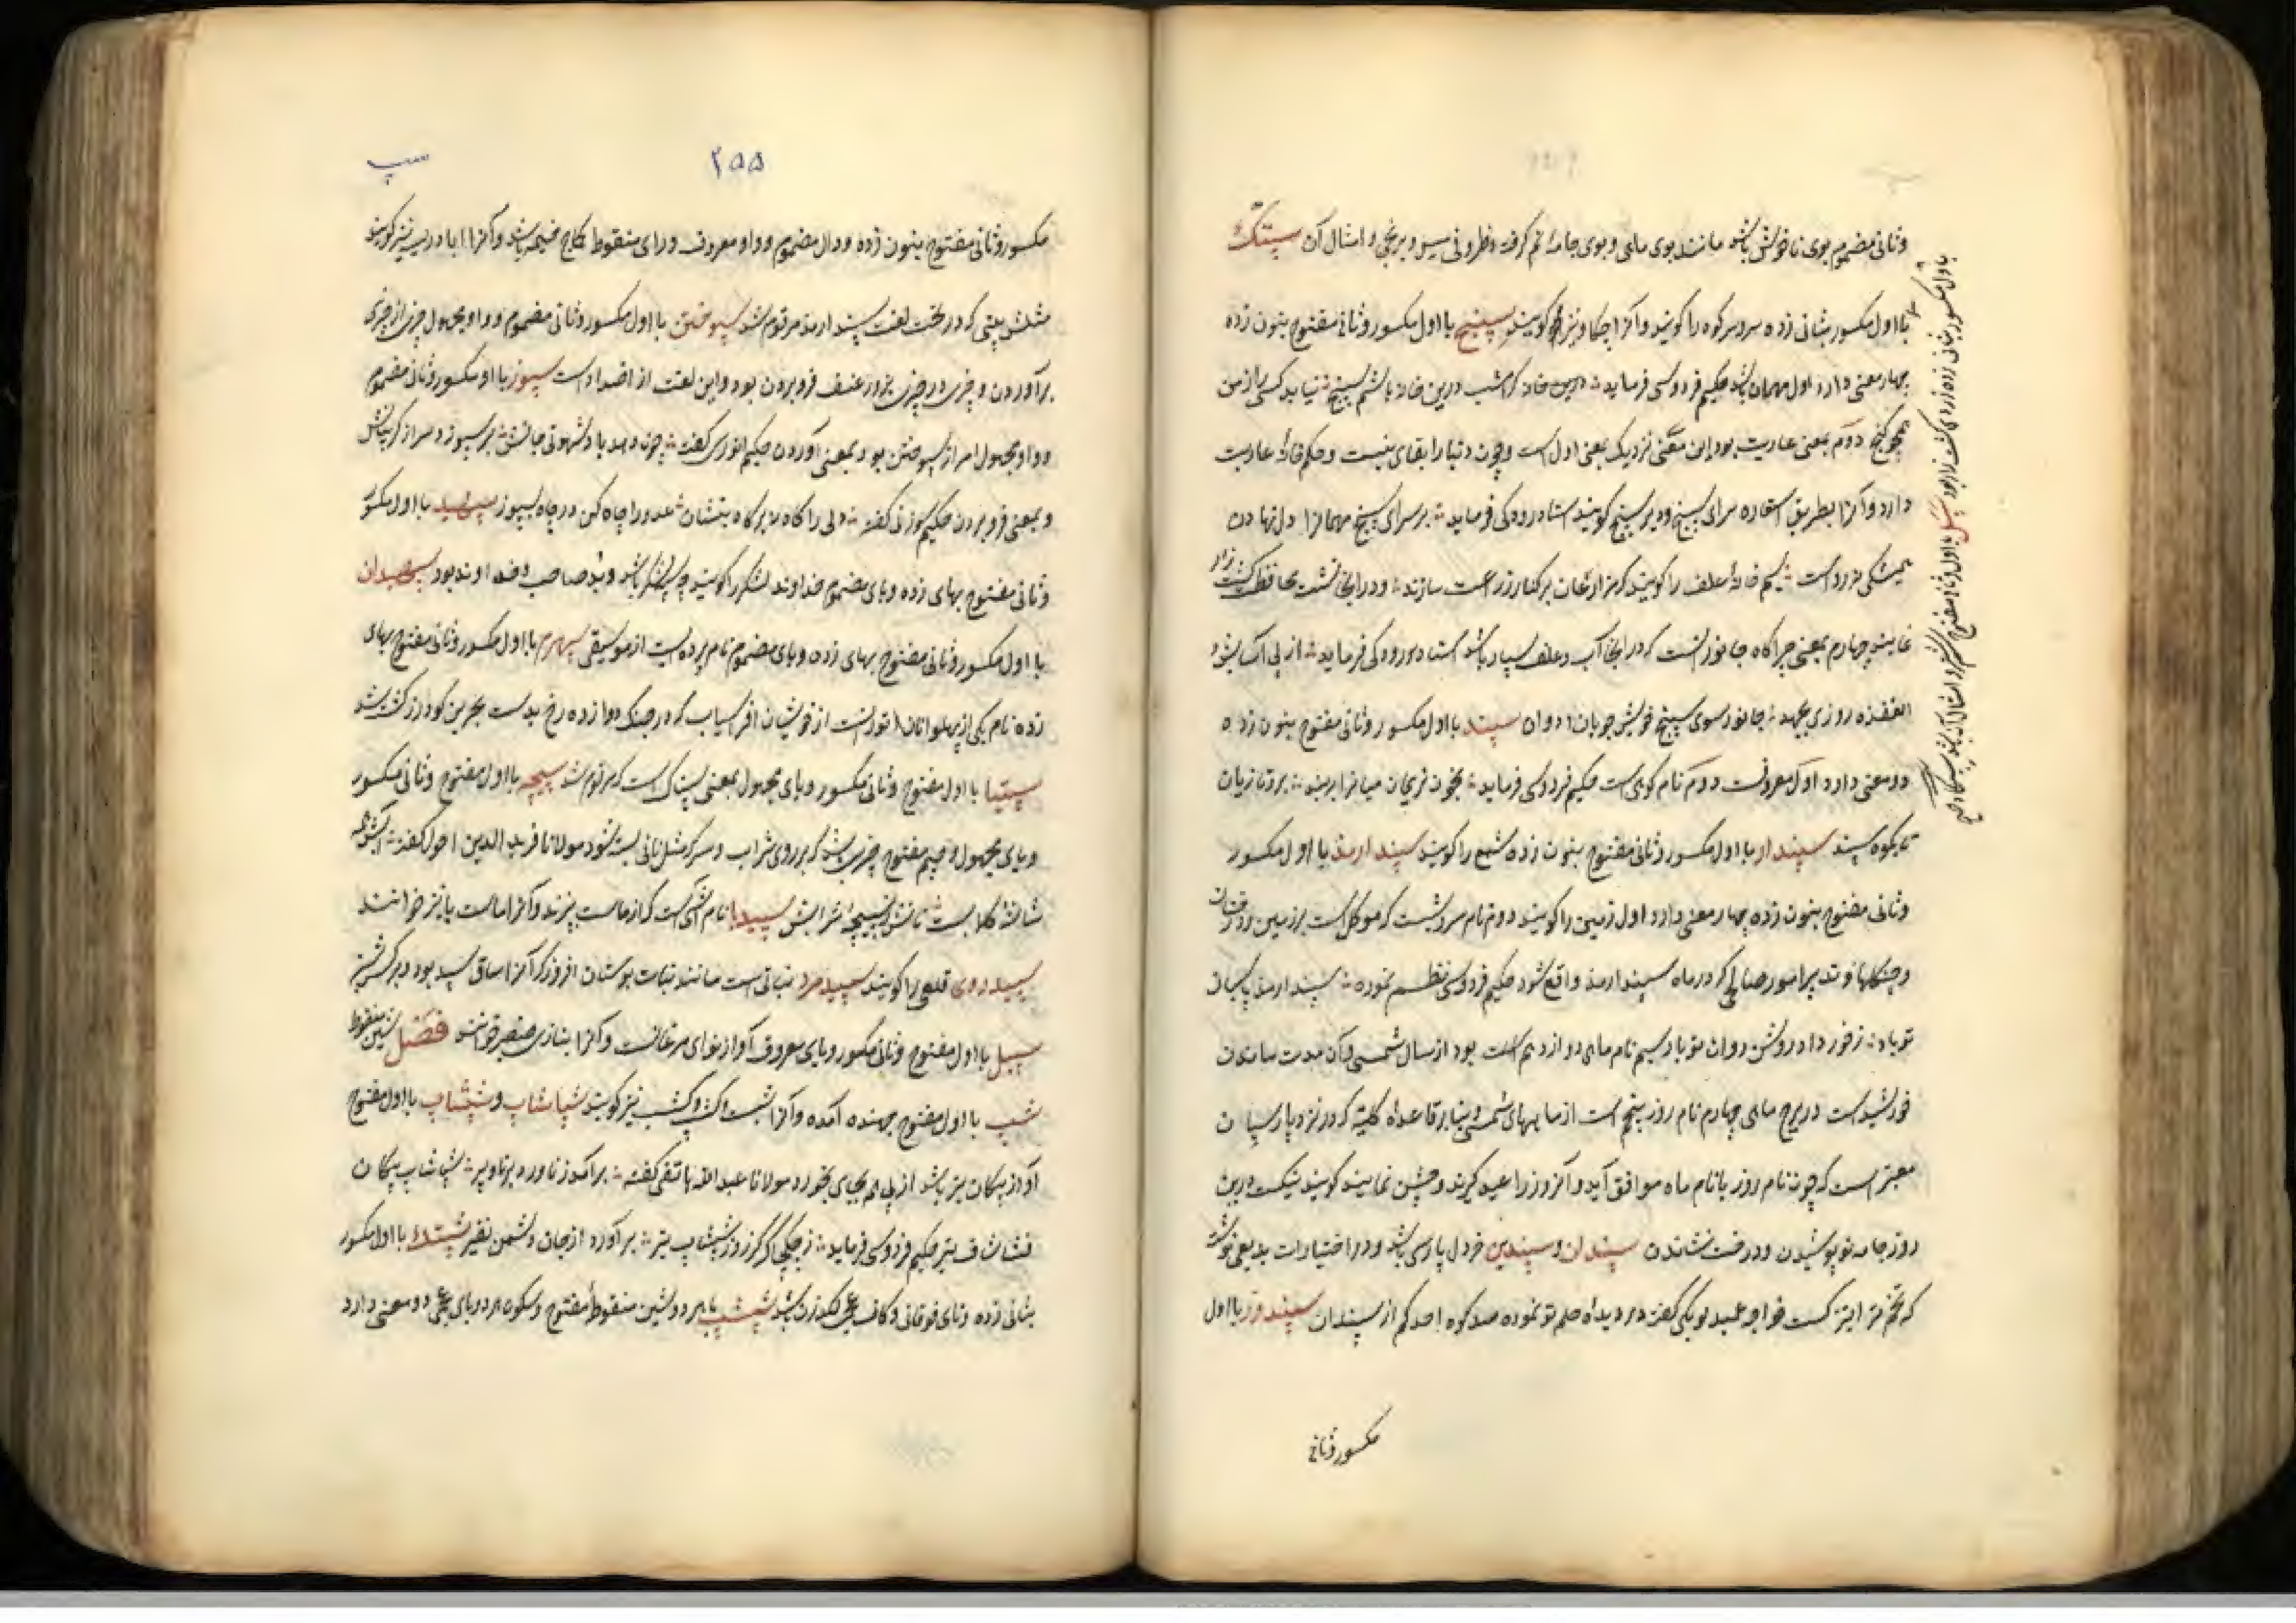 وثانی مضموم بوی ناخوش باشد مانند بوی ماهی و بوی جامهٔ نم گرفته و ظروف مسین و برنجی و امثال آن سپتک
با اول مکسور بثانی زده سر سر کوه را گویند و آنرا چکاد نیز گویند سپنج با اول مکسور وثانی مفتوح بنون زده
چهار معنی دارد اول مهمان باشد حکیم فردوسی فرماید درین خانه کرامشب درین خانه باشم سپنج نیاید کسی را ز من
هیچ رنج دوم بمعنی عاریت بود این معنی نزدیک بمعنی اول است و چون دنیا را بقای نیست و حکم خانهٔ عاریت
دارد و آنرا بطریق استعاره سرای سپنج و دیر سپنج گویند استاد رودکی فرماید بر سرای سپنج مهمانرا دل نهادن
همیشگی نه رواست سیم خانهٔ علف را گویند که مزارعان بر کنار زراعت سازند و در آنجا نشسته محافظت کشت زار
نمایند چهارم بمعنی چراگاه جانورانست که در آنجا آب و علف بسیار باشد استاد رودکی فرماید از پی
الفغده روزی بجهد جانور سوی سپنج خویش جویان و دوان سپند با اول مکسور وثانی مفتوح بنون زده
دو معنی دارد اول معروفست دوم نام کوهی است حکیم فردوسی فرماید بخون نریمان میانرا ببند برو تازیان
تا بکوه سپند سپندار با اول مکسور وثانی مفتوح بنون زده شمع را گویند سپندارمذ با اول مکسور
وثانی مفتوح بنون زده چهار معنی دارد اول زمین را گویند دوم نام سروشیست که موکل است بر زمین و درختان
و جنگلها و تدبیر امور مصالحی که در ماه سپندارمذ واقع شود حکیم فردوسی نظم نموده سپندارمذ پاسبان
تو باد ز خورداد روشن روان تو باد سیم نام ماه دوازدهم است بود از سال شمسی و آن مدت ماندن
خورشید است در برج ماهی چهارم نام روز پنجم است از ماههای شمسی بنابر قاعدهٔ کلیه که در نزد پارسیان
معتبر است که چون نام روز با نام ماه موافق آید و آنروز را عید گیرند و جشن نمایند گویند نیکست درین
روز جامه نو پوشیدن و درخت نشاندن سپندان و سپندین خردل پارسی باشد و در اختیارات بدیعی نوشته
که تخم تره تیزک است خواجه عمید لوبکی گفته در دیدهٔ حلم تو نموده صد کوه احد کم از سپندان سپندوز با اول
مکسور وثانی
با اول مکسور بثانی زده زردی کشت زار بود سپل با اول وثانی مفتوح
۲۵۵
سپ
مکسور وثانی مفتوح بنون زده و دال مضموم و واو معروف و زای منقوط کماج خیمه باشد و آنرا بادریسه نیز گویند
مثلش بیتی که در تحت لغت سپندارمذ مرقوم شد سپوختن با اول مکسور وثانی مضموم و واو مجهول چیزی از چیزی
برآوردن و چیزی در چیزی بزور عنف فرو بردن بود و این لغت از اضداد است سپوز با اول مکسور وثانی مضموم
و واو مجهول امر از سپوختن بود بمعنی آوردن حکیم انوری گفته چون دهد یاد شهوتی مالش بر سپوزد سر از گریبانش
و بمعنی فرو بردن حکیم سوزنی گفته ولی را گاه نه بر گاه بنشان عدو را چاه کن در چاه بسپوز سپهبد با اول مکسور
وثانی مفتوح بهای زده و بای مضموم خداوند لشکر را گویند چه سپه لشکر باشد و بد صاحب و خداوند بود سپهبدان
با اول مکسور وثانی مفتوح بهای زده و بای مضموم نام پرده ایست از موسیقی سپهرم با اول مکسور وثانی مفتوح بهای
زده نام یکی از پهلوانان تورانست از خویشان افراسیاب که در جنگ دوازده رخ بدست هجیر بن گودرز کشته شد
سپیتا با اول مفتوح وثانی مکسور و یای مجهول بمعنی است که مرقوم شد سپیچه با اول مفتوح وثانی مکسور
و یای مجهول و جیم مفتوح چیزی باشد که بر روی شراب و سرکه مثل نانی بسته شود مولانا فرید الدین احول گفته
سپیدبا نام آشی است که از ماست بپزند و آنرا ماست با نیز خوانند
سپیدروی قلعی را گویند سپیدمرد نباتی است مانند نبات بوستان افروز که آنرا ساق سپید بود
سپیل با اول مفتوح وثانی مکسور و یای معروف آواز نوای مرغانست و آنرا بتازی صفیر خوانند فصل شین منقوط
شپ با اول مفتوح جهنده آمده و آنرا نیز گویند شپاشاپ و شپشاپ با اول مفتوح
آواز پیکان تیر باشد از پی هم بجای بخورد مولانا عبدالله هاتفی گفته برآمد ز ناورد برنا و پیر شپاشاپ پیکان
فشافش تیر حکیم فردوسی فرماید برآورد از جان دشمن نفیر شپتک با اول مکسور
بثانی زده و تای فوقانی و کاف عجمی لگد زدن باشد شپشپ با هر دو شین منقوط مفتوح و سکون هر دو بای عجمی دو معنی دارد